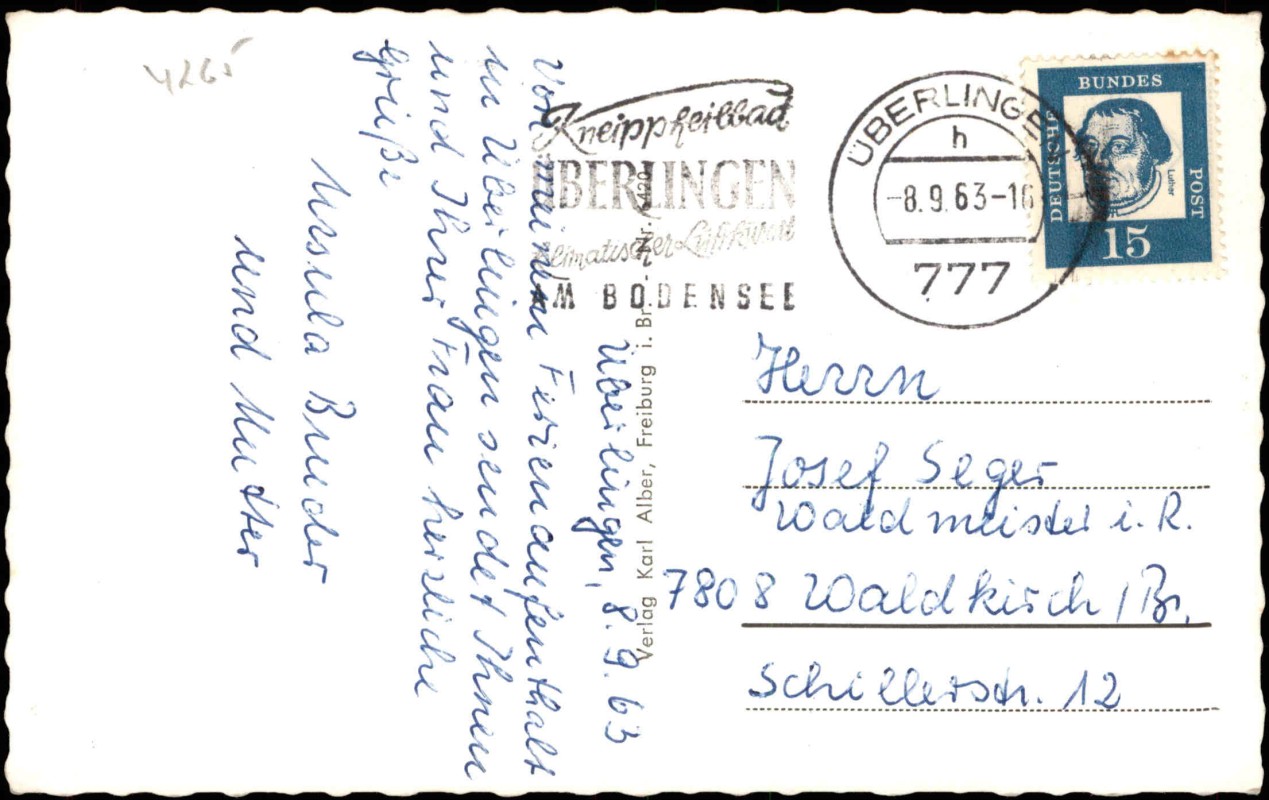 4265
Kneippheilbad
ÜBERLINGEN
klimatischer Luftkurort
AM BODENSEE
ÜBERLINGEN
h
-8.9.63-16
777
DEUTSCHE
BUNDES
POST
Luther
15
Überlingen, 8.9.63
Von meinem Ferienaufenthalt
in Überlingen sendet Ihnen
und Ihrer Frau herzliche
Grüße
Ursula Bruder
und Mutter
Verlag Karl Alber, Freiburg i. Br. - Nr.
Herrn
Josef Seger
Waldmeister i. R.
7808 Waldkirch / Br.
Schillerstr. 12